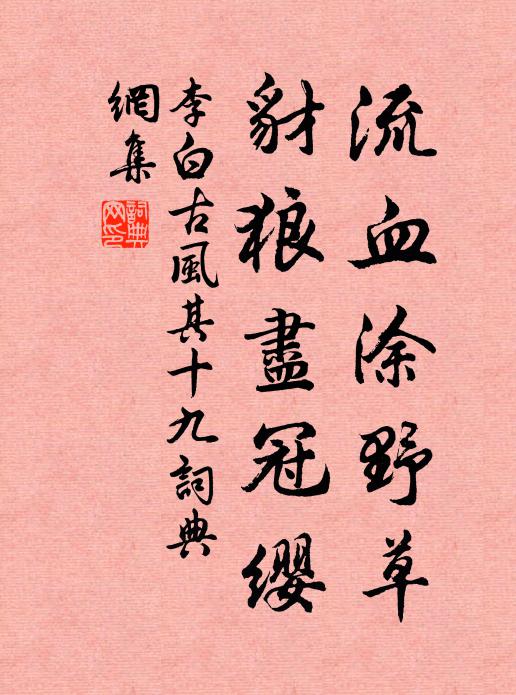 流血涂野草
豺狼盡冠纓
李白古風其十九詞典
網集
詞典
网印